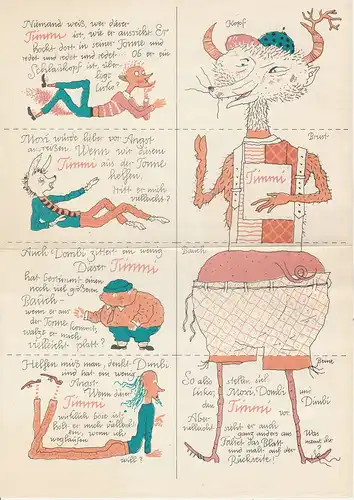 Niemand weiß, wer dieser
Timmi ist, wie er aussieht. Er
hockt dort in seiner Tonne und
redet und redet und redet... Ob er ein
Schlaukopf ist, über-
legt
Kopf
Moxi würde lieber vor Angst
ausreißen. Wenn wir diesem
Timmi aus der Tonne
helfen,
tritt er mich
vielleicht?
Brust
Timmi
Auch Dombi zittert ein wenig.
Dieser Timmi
hat bestimmt einen
noch viel größeren
Bauch –
wenn er aus
der Tonne kommt,
walzt er mich
vielleicht platt?
Bauch
Helfen muß man, denkt Dimbi
und hat ein wenig
Angst.
Wenn dieser
Timmi
wirklich böse ist,
holt er mich vielleicht
ein, wenn ich
weglaufen
will?
Beine
So also stellen sich
Moxi, Dombi und
Dimbi
den Timmi vor.
Aber
vielleicht sieht er auch
ganz anders aus.
Was meint ihr?
Faltet das Blatt
und malt auf der
Rückseite!